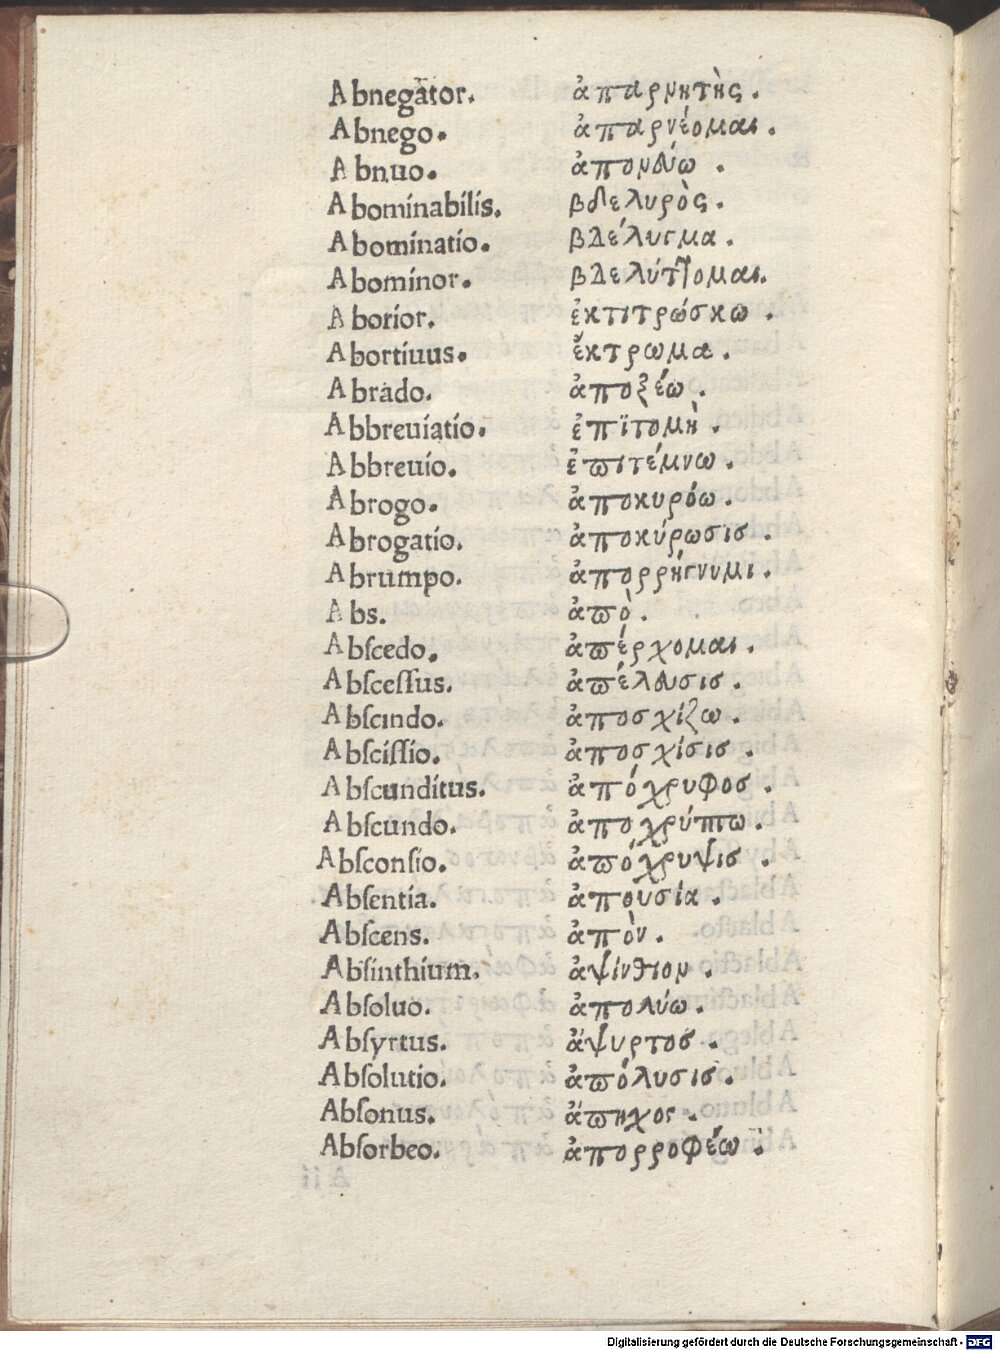 Abnegator. ἀπαρνητὴς.
Abnego. ἀπαρνέομαι.
Abnuo. ἀπονδύω.
Abominabilis. βδελυρὸς.
Abominatio. βδέλυγμα.
Abominor. βδελύττομαι.
Aborior. ἐκτιτρώσκω.
Abortiuus. ἔκτρωμα.
Abrado. ἀποξέω.
Abbreuiatio. ἐπϊτομὴ.
Abbreuio. ἐπιτέμνω.
Abrogo. ἀποκυρόω.
Abrogatio. ἀποκύρωσισ.
Abrumpo. ἀπορρήγνυμι.
Abs. ἀπὸ.
Abſcedo. ἀπέρχομαι.
Abſceſſus. ἀπέλουσισ.
Abſcindo. ἀποσχίζω.
Abſciſſio. ἀποσχίσισ.
Abſcunditus. ἀπόχρυφοσ.
Abſcundo. ἀποχρύπτω.
Abſconſio. ἀπόχρυψισ.
Abſentia. ἀπουσία.
Abſcens. ἀπὸν.
Abſinthium. ἀψίνθιον.
Abſoluo. ἀπολύω.
Abſyrtus. ἄψυρτοσ.
Abſolutio. ἀπόλυσισ.
Abſonus. ἄπηχος.
Abſorbeo. ἀπορροφέω.
Digitalisierung gefördert durch die Deutsche Forschungsgemeinschaft - DFG